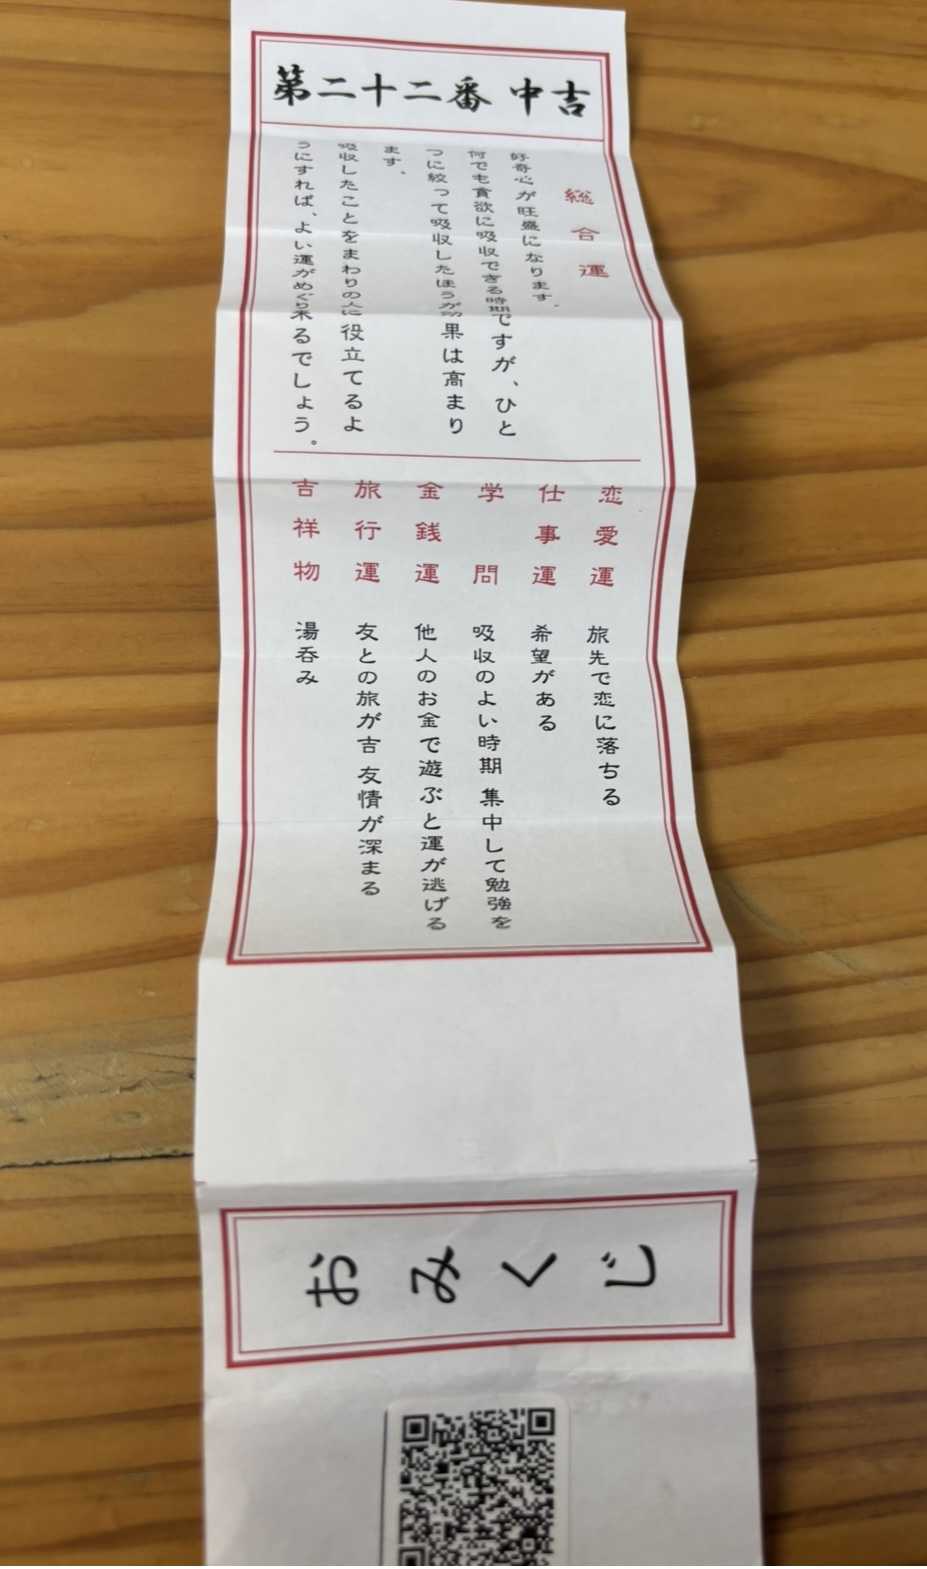 第二十二番 中吉
総合運
好奇心が旺盛になります。
何でも貪欲に吸収できる時期ですが、ひと
つに絞って吸収したほうが効果は高まり
ます。
吸収したことをまわりの人に役立てるよ
うにすれば、よい運がめぐり来るでしょう。
恋愛運 旅先で恋に落ちる
仕事運 希望がある
学問 吸収のよい時期 集中して勉強を
金銭運 他人のお金で遊ぶと運が逃げる
旅行運 友との旅が吉 友情が深まる
吉祥物 湯呑み
おみくじ